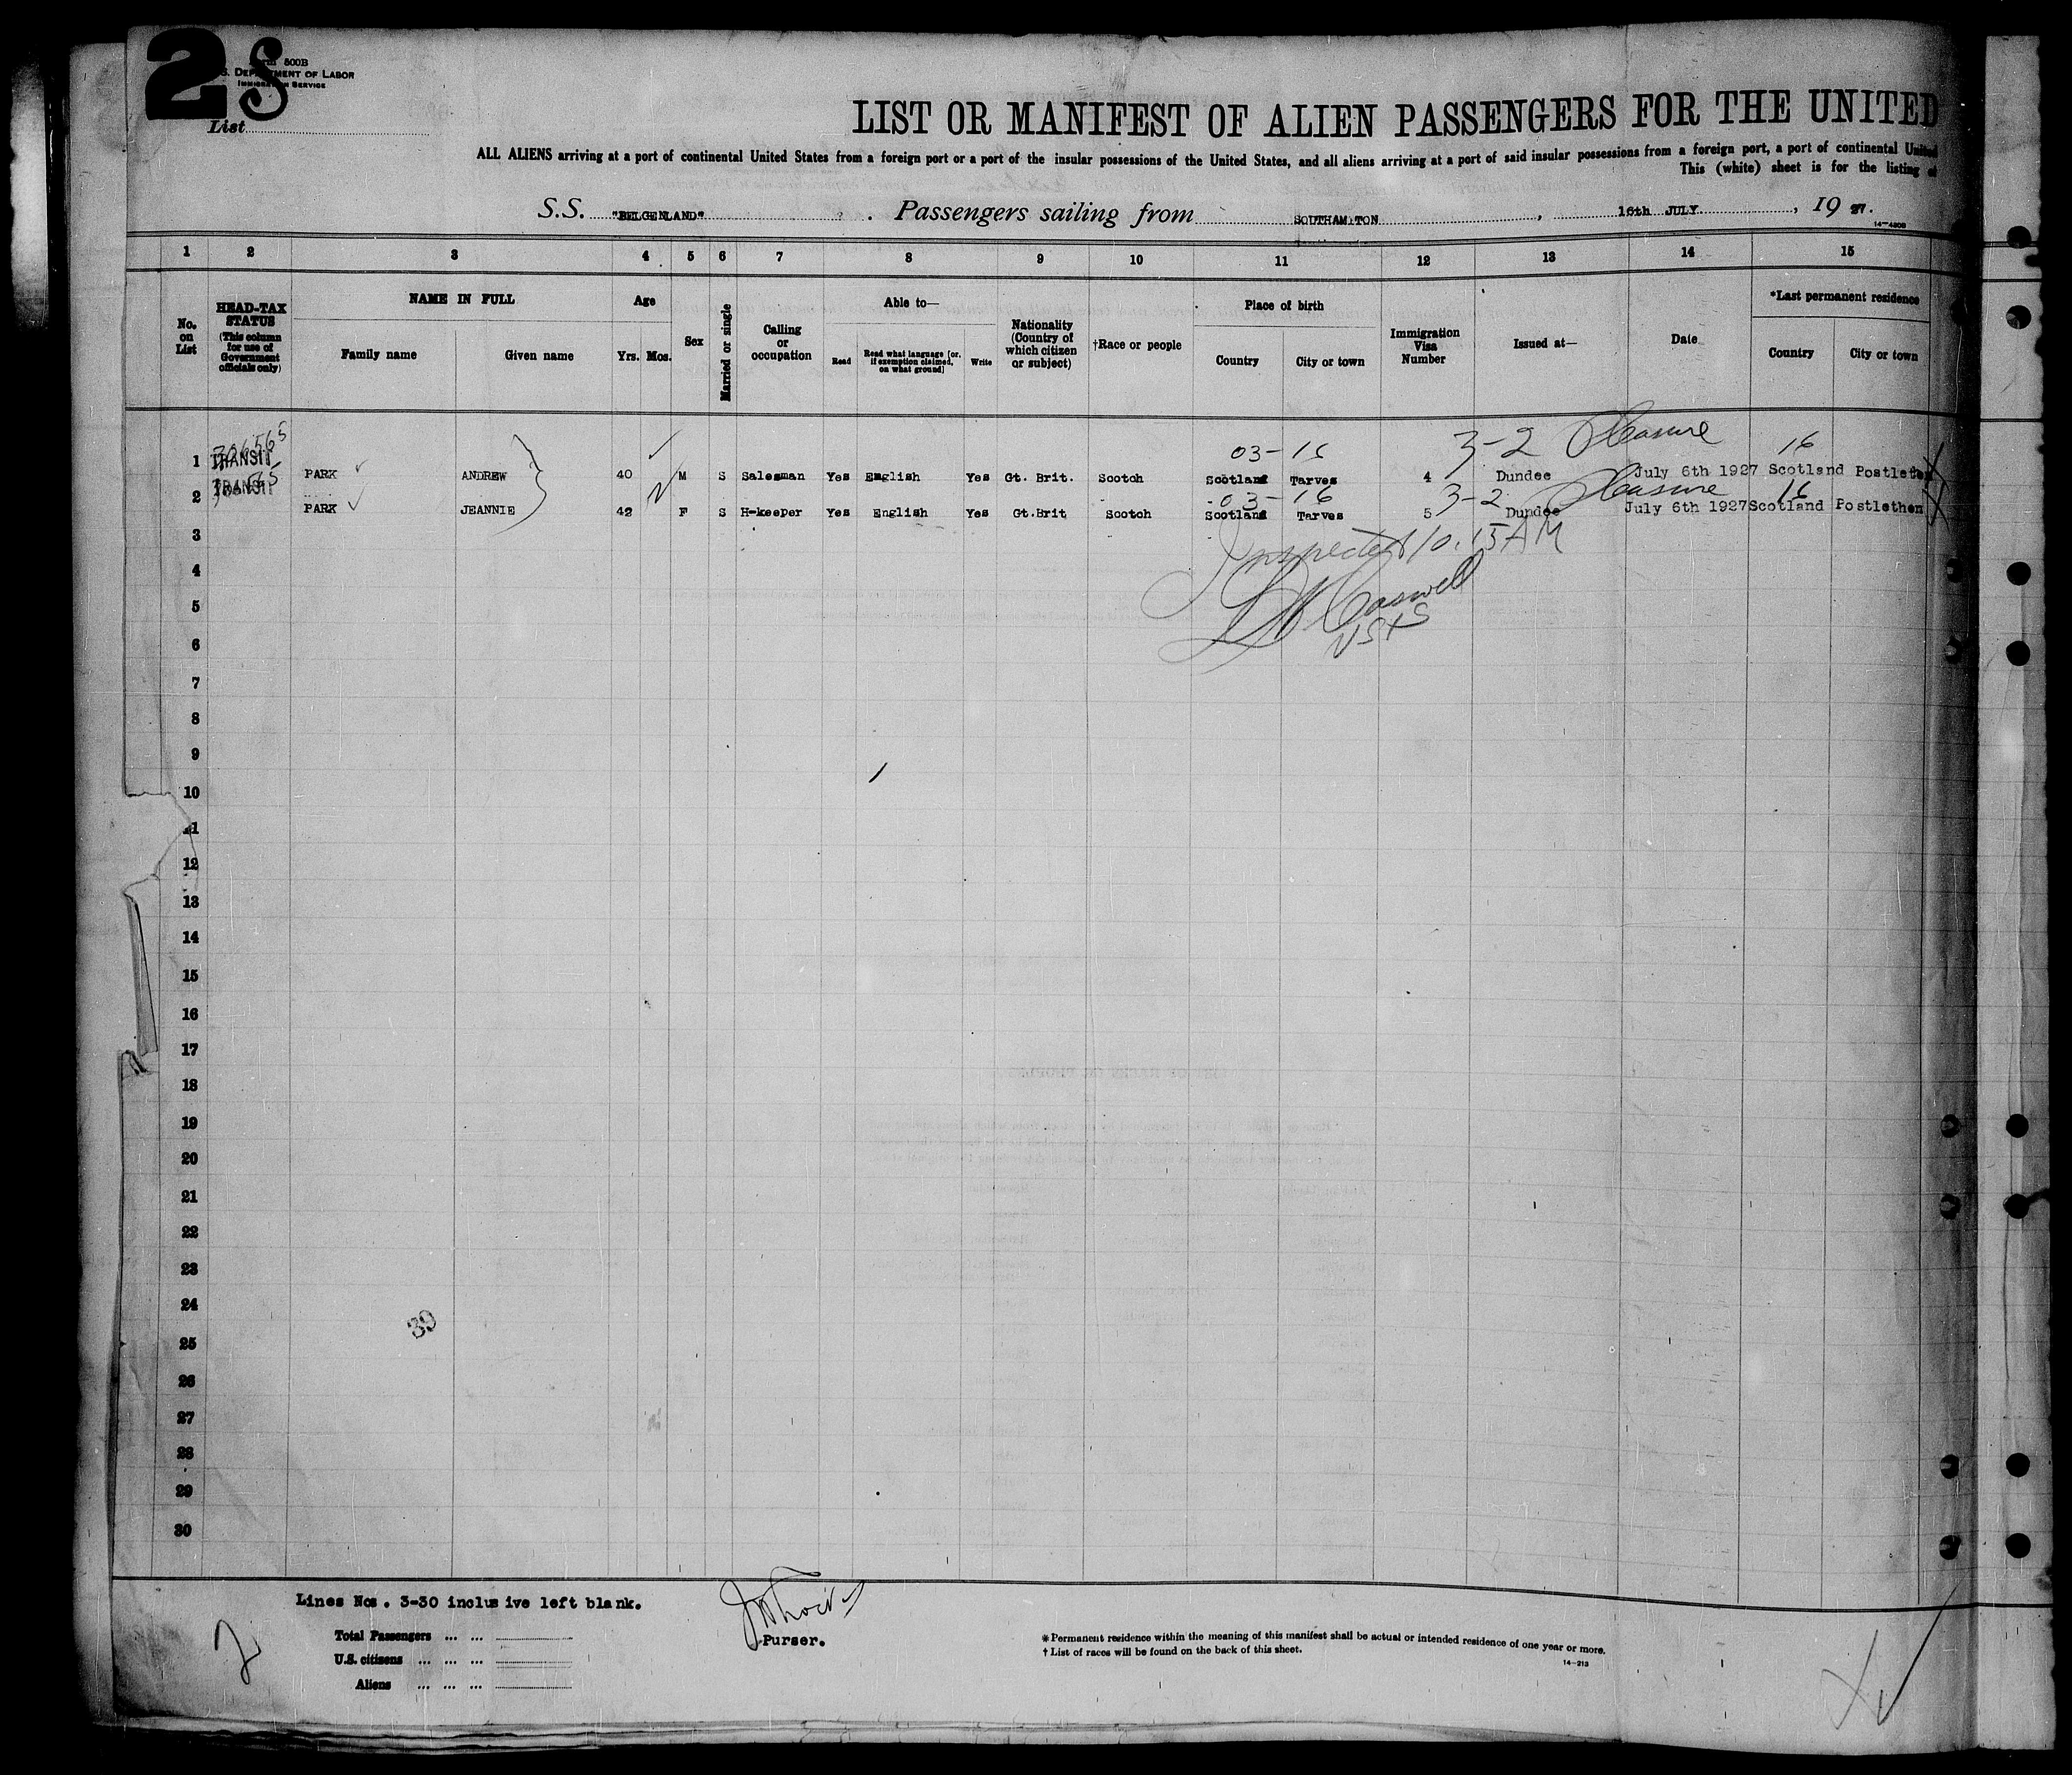 2 S
Form 500B
U.S. DEPARTMENT OF LABOR
IMMIGRATION SERVICE
List
LIST OR MANIFEST OF ALIEN PASSENGERS FOR THE UNITED
ALL ALIENS arriving at a port of continental United States from a foreign port or a port of the insular possessions of the United States, and all aliens arriving at a port of said insular possessions from a foreign port, a port of continental United
This (white) sheet is for the listing of
S.S. "BELGENLAND" Passengers sailing from SOUTHAMPTON, 16th JULY, 1927.
14-4303
1 2 3 4 5 6 7 8 9 10 11 12 13 14 15
No. on List
HEAD-TAX STATUS (This column for use of Government officials only)
NAME IN FULL
Family name Given name
Age
Yrs. Mos.
Sex
Married or single
Calling or occupation
Able to—
Read Read what language [or, if exemption claimed, on what ground] Write
Nationality (Country of which citizen or subject)
†Race or people
Place of birth
Country City or town
Immigration Visa Number
Issued at—
Date
*Last permanent residence
Country City or town
03-16 3-2 Pleasure 16
1 TRANSIT PARK ANDREW 40 M S Salesman Yes English Yes Gt. Brit. Scotch Scotland Tarves 4 Dundee July 6th 1927 Scotland Postlethen
03-16 3-2 Pleasure 16
2 TRANSIT PARK JEANNIE 42 F S H-keeper Yes English Yes Gt.Brit Scotch Scotland Tarves 5 Dundee July 6th 1927 Scotland Postlethen
Inspected 10.15 AM
Caswell
3
4
5
6
7
8
9
10
11
12
13
14
15
16
17
18
19
20
21
22
23
24
39
25
26
27
28
29
30
Lines Nos. 3-30 inclusive left blank.
Purser.
2
Total Passengers ... ...
U.S. citizens ... ... ...
Aliens ... ... ...
*Permanent residence within the meaning of this manifest shall be actual or intended residence of one year or more.
†List of races will be found on the back of this sheet.
14-213